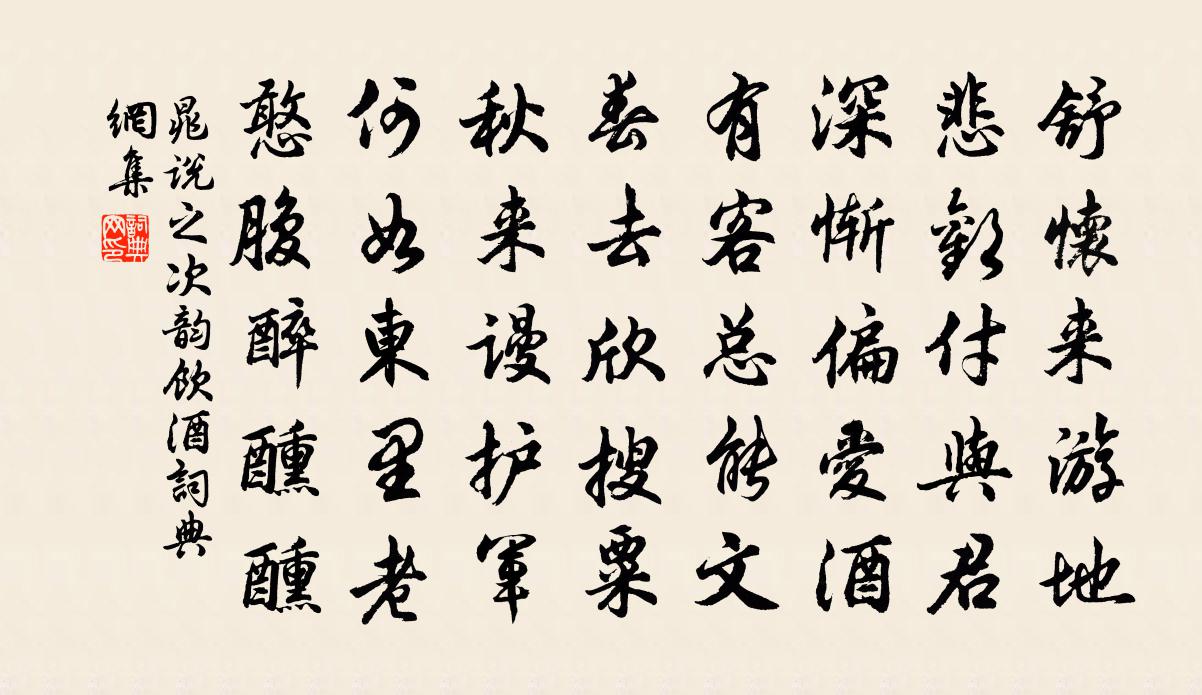 舒懷来游地
悲歡付與君
深慚偏愛酒
有客总能文
春去欣搜粟
秋来谩护軍
何如東里老
憨腹醉醺醺
晁说之次韵飲酒詞典
網集
詞典網印